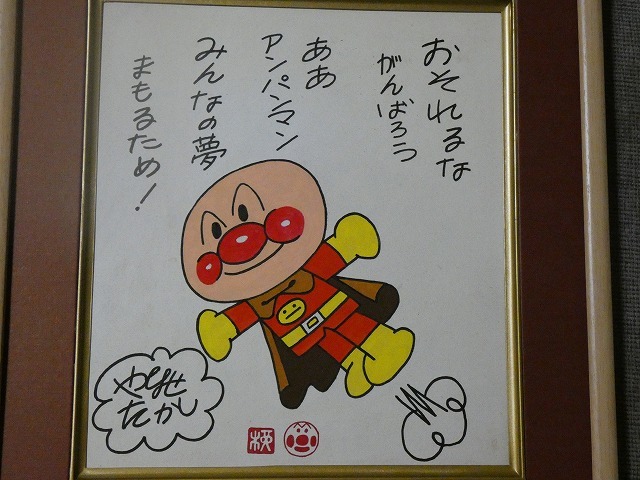 おそれるな
がんばろう
ああ
アンパンマン
みんなの夢
まもるため！
やなせ
たかし